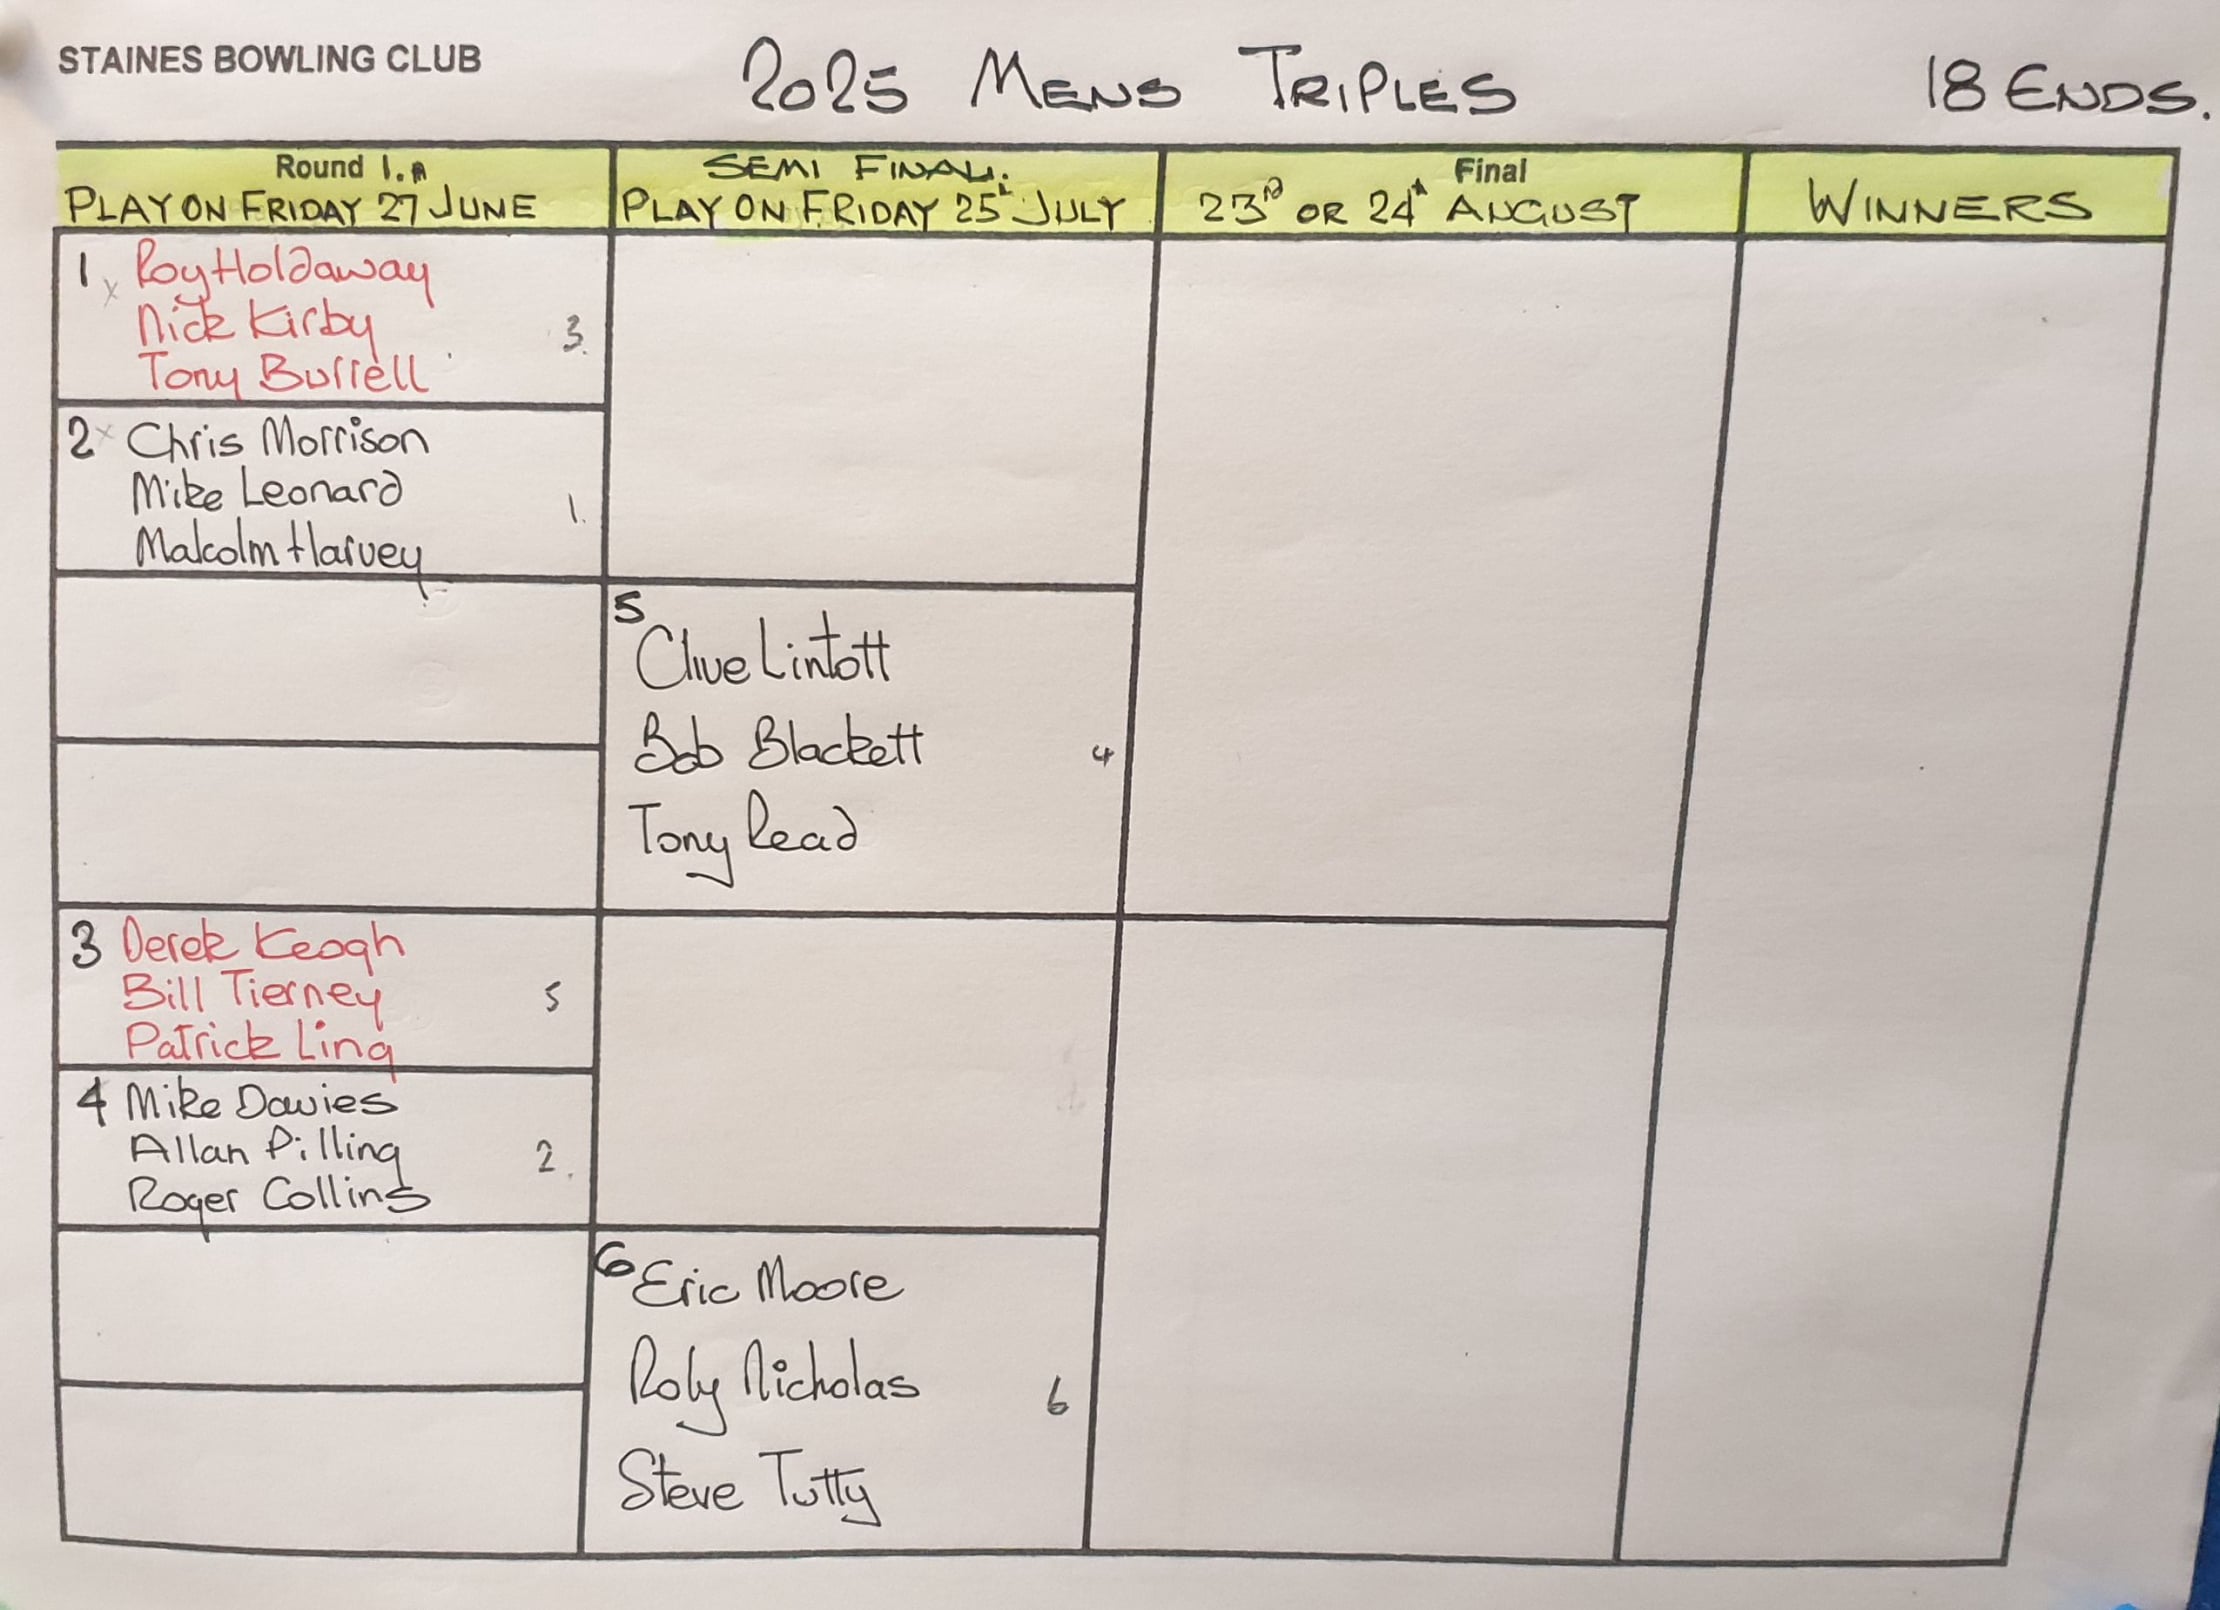 STAINES BOWLING CLUB
2025 MENS TRIPLES
18 ENDS.
Round 1.
PLAY ON FRIDAY 27 JUNE
SEMI FINAL.
PLAY ON FRIDAY 25th JULY
Final
23RD OR 24th AUGUST
WINNERS
1 x Roy Holdaway
Nick Kirby 3.
Tony Burrell
2 x Chris Morrison
Mike Leonard 1.
Malcolm Harvey
5
Clive Lintott
Bob Blackett 4
Tony Read
3 Derek Keogh
Bill Tierney 5
Patrick Ling
4 Mike Davies
Allan Pilling 2.
Roger Collins
6 Eric Moore
Roly Nicholas 6
Steve Tutty